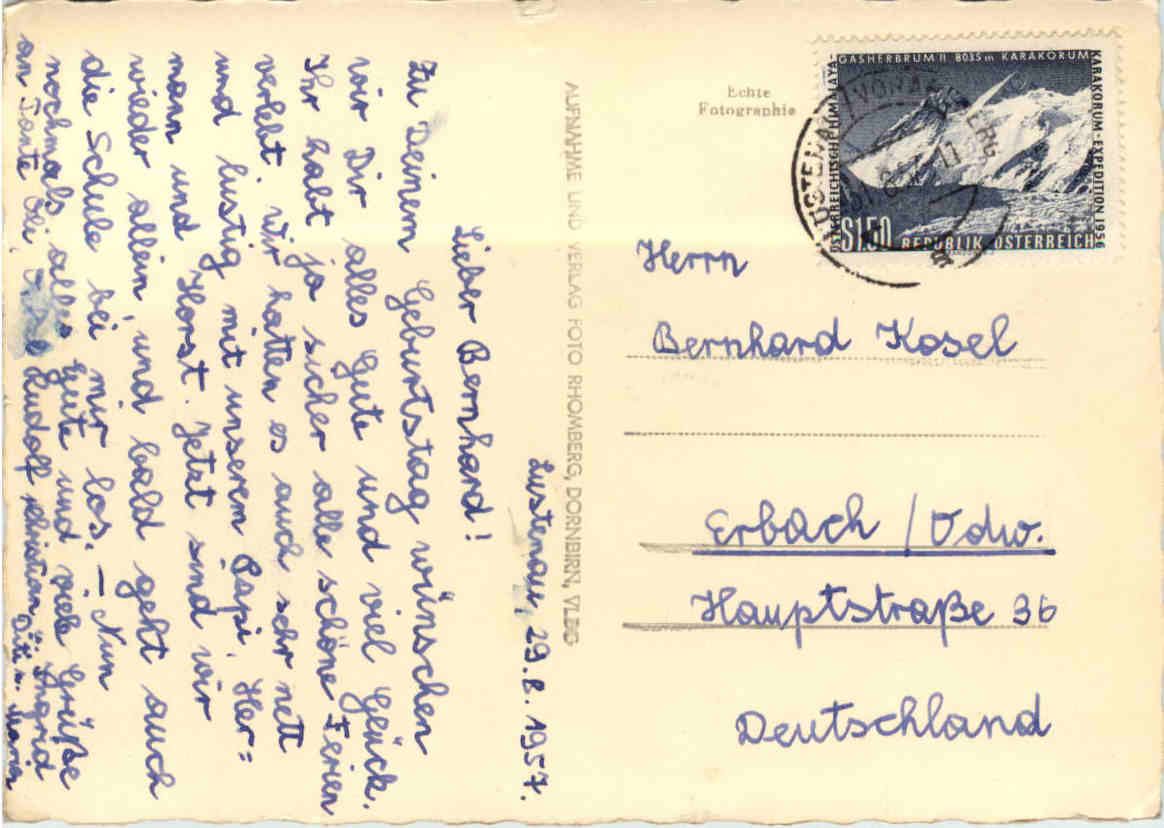 Lustenau, 29.8.1957.
Lieber Bernhard!
Zu Deinem Geburtstag wünschen
wir Dir alles Gute und viel Glück.
Ihr habt ja sicher alle schöne Ferien
verlebt. Wir hatten es auch sehr nett
und lustig mit unserem Papi, Her=
mann und Horst. Jetzt sind wir
wieder allein, und bald geht auch
die Schule bei mir los. — Nun
nochmals alles Gute und viele Grüße
an Tante Oli, Rudolf Christian u. Ingrid
u. Maria
AUFNAHME UND VERLAG FOTO RHOMBERG, DORNBIRN, VLBG
Echte
Fotographie
GASHERBRUM II 8035 m KARAKORUM
KARAKORUM-EXPEDITION 1956
ÖSTERREICHISCHE HIMALAYA-
S1.50 REPUBLIK ÖSTERREICH
LUSTENAU
Herrn
Bernhard Kosel
Erbach / Odw.
Hauptstraße 36
Deutschland